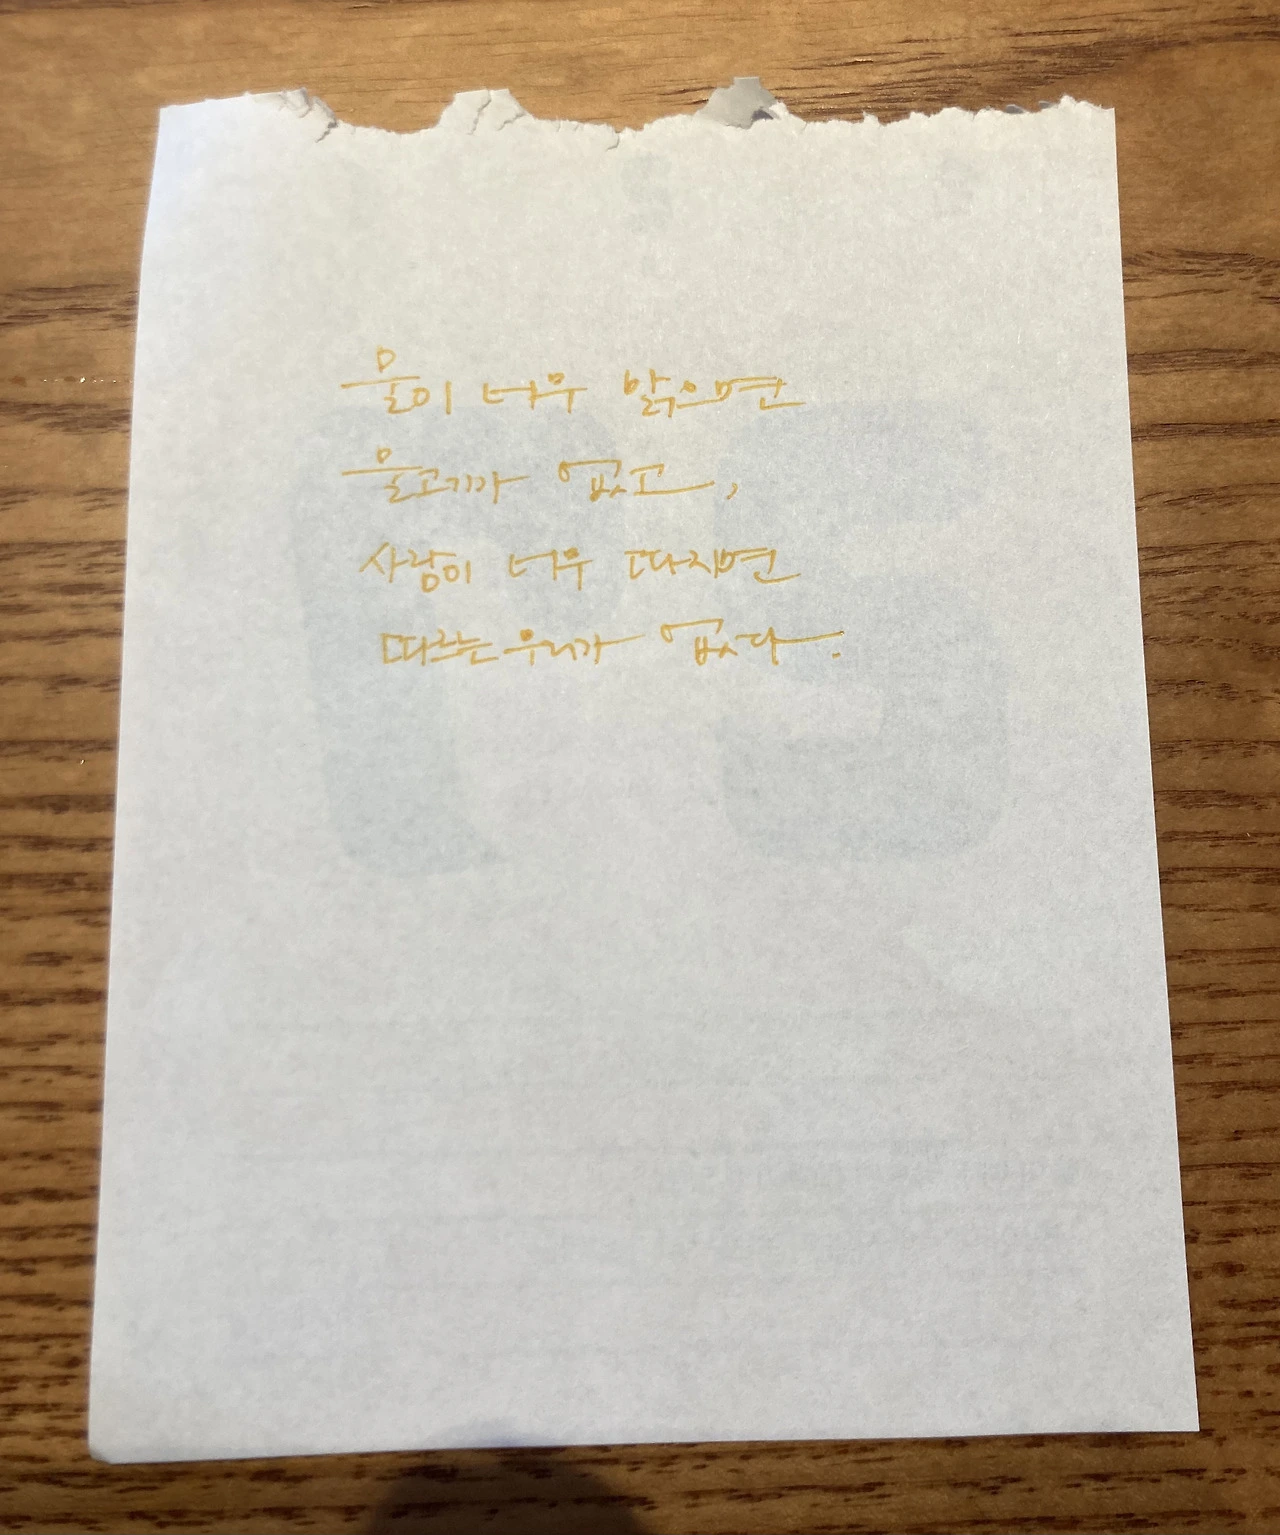 물이 너무 맑으면
물고기가 없고,
사람이 너무 따지면
따르는 우리가 없다.